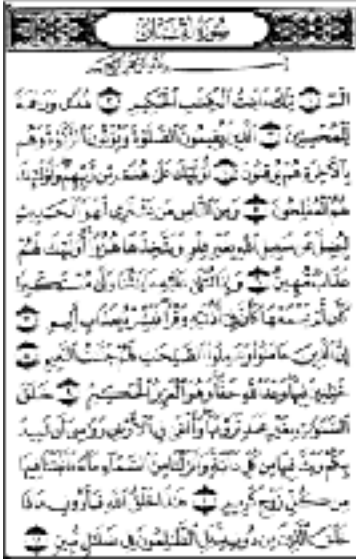 سُورَةُ لُقْمَانَ
بِسْمِ اللَّهِ الرَّحْمَٰنِ الرَّحِيمِ
الٓمٓ ١ تِلْكَ ءَايَٰتُ الْكِتَٰبِ الْحَكِيمِ ٢ هُدًى وَرَحْمَةً
لِّلْمُحْسِنِينَ ٣ الَّذِينَ يُقِيمُونَ الصَّلَوٰةَ وَيُؤْتُونَ الزَّكَوٰةَ وَهُم
بِالْءَاخِرَةِ هُمْ يُوقِنُونَ ٤ أُو۟لَٰٓئِكَ عَلَىٰ هُدًى مِّن رَّبِّهِمْ وَأُو۟لَٰٓئِكَ
هُمُ الْمُفْلِحُونَ ٥ وَمِنَ النَّاسِ مَن يَشْتَرِى لَهْوَ الْحَدِيثِ
لِيُضِلَّ عَن سَبِيلِ اللَّهِ بِغَيْرِ عِلْمٍ وَيَتَّخِذَهَا هُزُوًا أُو۟لَٰٓئِكَ لَهُمْ
عَذَابٌ مُّهِينٌ ٦ وَإِذَا تُتْلَىٰ عَلَيْهِ ءَايَٰتُنَا وَلَّىٰ مُسْتَكْبِرًا
كَأَن لَّمْ يَسْمَعْهَا كَأَنَّ فِىٓ أُذُنَيْهِ وَقْرًا فَبَشِّرْهُ بِعَذَابٍ أَلِيمٍ ٧
إِنَّ الَّذِينَ ءَامَنُوا۟ وَعَمِلُوا۟ الصَّٰلِحَٰتِ لَهُمْ جَنَّٰتُ النَّعِيمِ ٨
خَٰلِدِينَ فِيهَا وَعْدَ اللَّهِ حَقًّا وَهُوَ الْعَزِيزُ الْحَكِيمُ ٩ خَلَقَ
السَّمَٰوَٰتِ بِغَيْرِ عَمَدٍ تَرَوْنَهَا وَأَلْقَىٰ فِى الْأَرْضِ رَوَٰسِىَ أَن تَمِيدَ
بِكُمْ وَبَثَّ فِيهَا مِن كُلِّ دَآبَّةٍ وَأَنزَلْنَا مِنَ السَّمَآءِ مَآءً فَأَنۢبَتْنَا فِيهَا
مِن كُلِّ زَوْجٍ كَرِيمٍ ١٠ هَٰذَا خَلْقُ اللَّهِ فَأَرُونِى مَاذَا
خَلَقَ الَّذِينَ مِن دُونِهِ بَلِ الظَّٰلِمُونَ فِى ضَلَٰلٍ مُّبِينٍ ١١